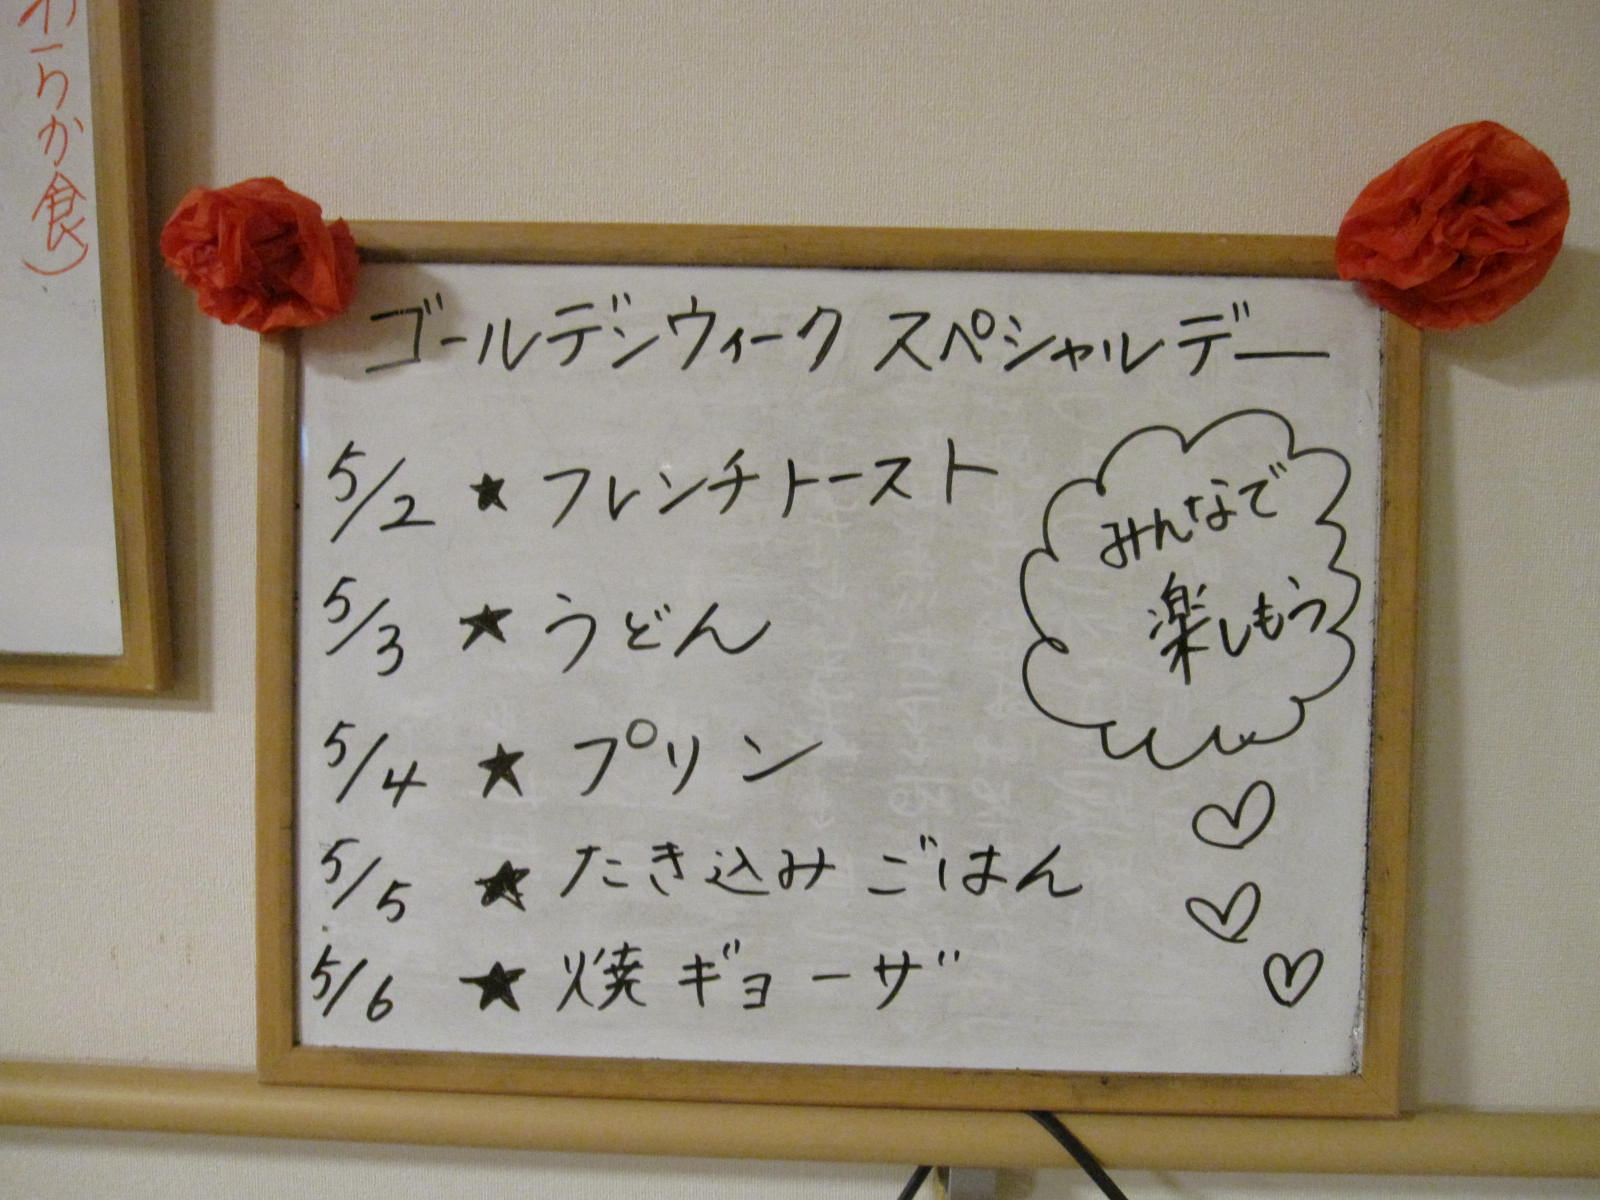 わらか食)
ゴールデンウィーク スペシャルデー
5/2 ★ フレンチトースト
5/3 ★ うどん
5/4 ★ プリン
5/5 ★ たき込みごはん
5/6 ★ 焼ギョーザ
みんなで
楽しもう